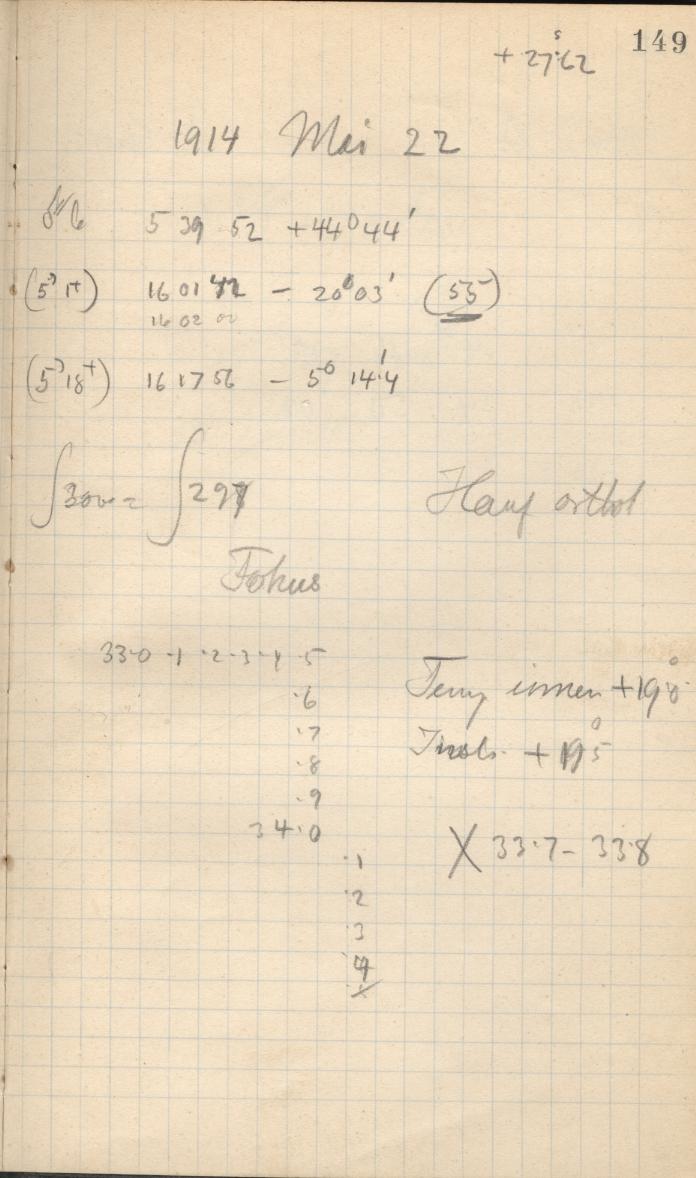 149
+ 27ˢ.62
1914 Mai 22
5 39 52 +44° 44'
(5ʰ 1ᵐ) 16 01 42 − 20° 03' (55)
16 02 00
(5ʰ 18ᵐ) 16 17 56 − 5° 14'.4
∫300 = ∫297
Hauf orthol
Fokus
33.0 .1 .2 .3 .4 .5
.6
Temp innen +19°.8
.7
+ 19°.5
.8
.9
34.0
X 33.7 − 33.8
.1
.2
.3
.4